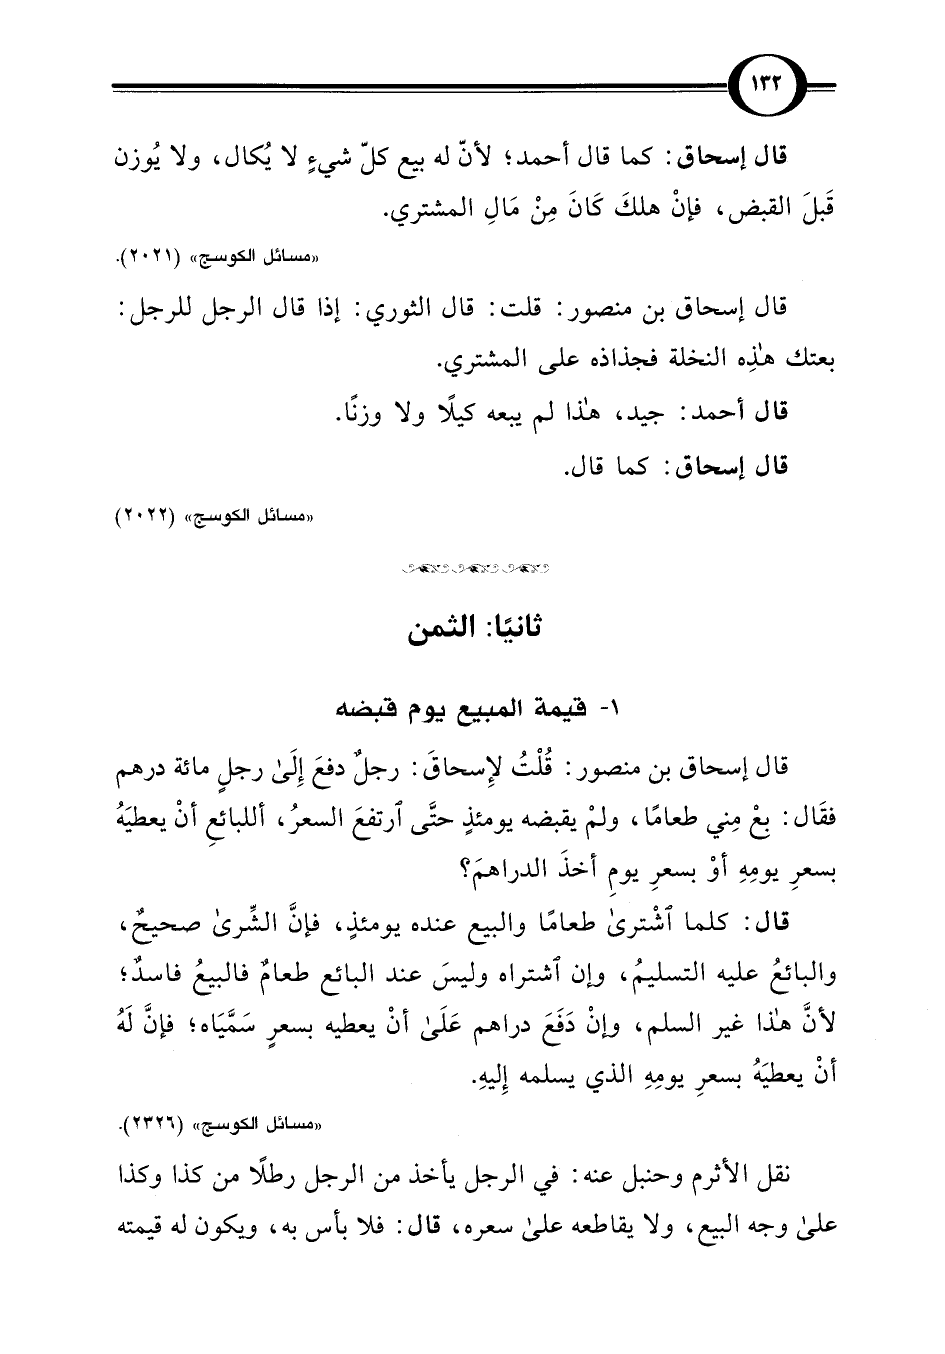 ١٣٢
قال إسحاق: كما قال أحمد؛ لأنّ له بيع كلّ شيءٍ لا يُكال، ولا يُوزن
قَبلَ القبض، فإنْ هلكَ كَانَ مِنْ مَالِ المشتري.
«مسائل الكوسج» (٢٠٢١).
قال إسحاق بن منصور: قلت: قال الثوري: إذا قال الرجل للرجل:
بعتك هذِه النخلة فجذاذه على المشتري.
قال أحمد: جيد، هذا لم يبعه كيلًا ولا وزنًا.
قال إسحاق: كما قال.
«مسائل الكوسج» (٢٠٢٢)
ثانيًا: الثمن
١- قيمة المبيع يوم قبضه
قال إسحاق بن منصور: قُلْتُ لإسحاقَ: رجلٌ دفعَ إِلَىٰ رجلٍ مائة درهم
فقَال: بعْ مِني طعامًا، ولمْ يقبضه يومئذٍ حتَّى ٱرتفعَ السعرُ، أللبائعِ أنْ يعطيَهُ
بسعرِ يومِهِ أوْ بسعرِ يومِ أخذَ الدراهمَ؟
قال: كلما ٱشْترىٰ طعامًا والبيع عنده يومئذٍ، فإنَّ الشِّرىٰ صحيحٌ،
والبائعُ عليه التسليمُ، وإن ٱشتراه وليسَ عند البائع طعامٌ فالبيعُ فاسدٌ؛
لأنَّ هٰذا غير السلم، وإنْ دَفَعَ دراهم عَلَىٰ أنْ يعطيه بسعرٍ سَمَّيَاه؛ فإنَّ لَهُ
أنْ يعطيَهُ بسعرِ يومِهِ الذي يسلمه إليهِ.
«مسائل الكوسج» (٢٣٢٦).
نقل الأثرم وحنبل عنه: في الرجل يأخذ من الرجل رطلًا من كذا وكذا
علىٰ وجه البيع، ولا يقاطعه علىٰ سعره، قال: فلا بأس به، ويكون له قيمته